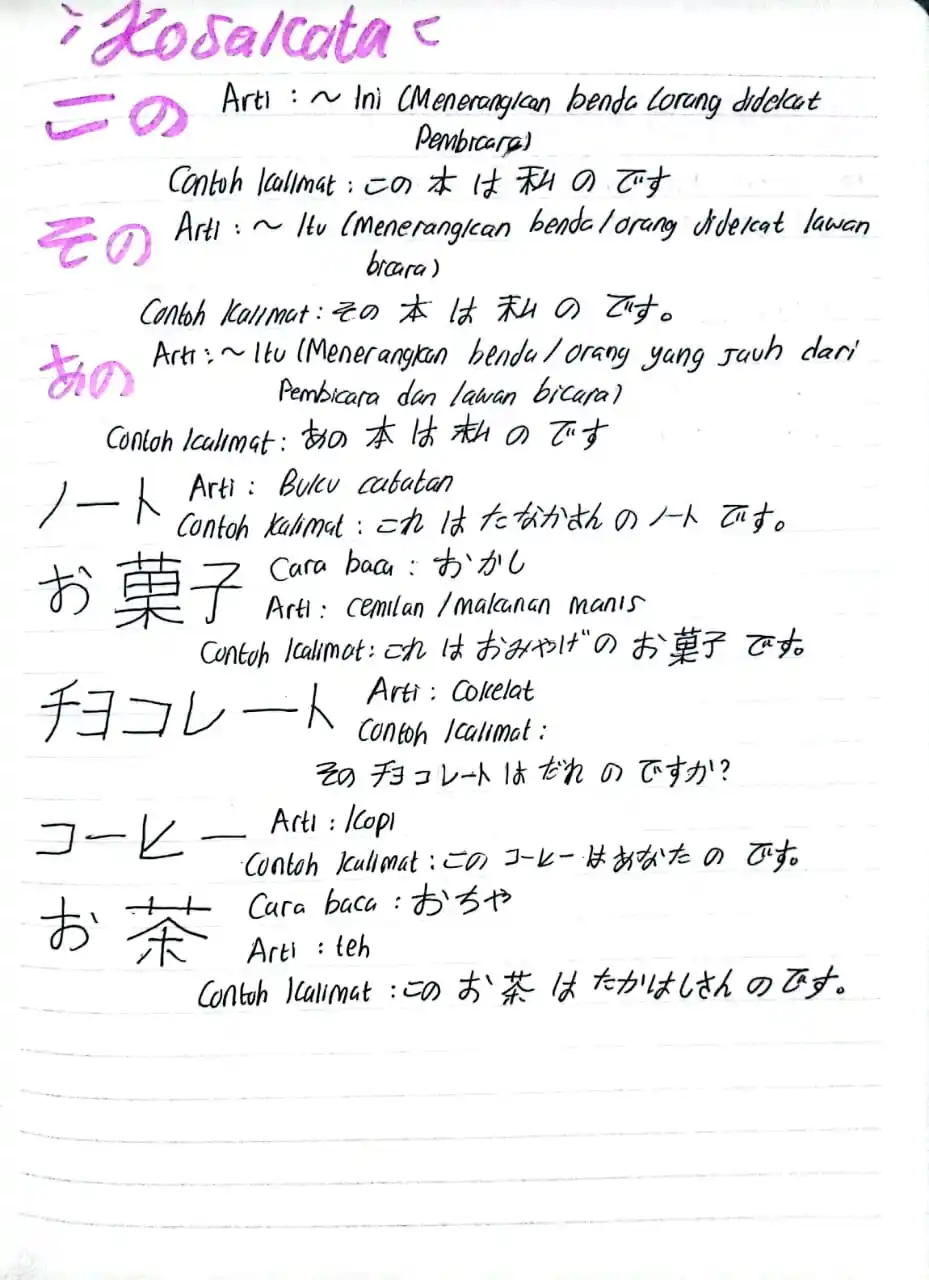 > Kosakata <
この Arti : ~ Ini (Menerangkan benda (orang didekat
Pembicara)
Contoh kalimat : この 本 は 私 の です
その Arti : ~ Itu (Menerangkan benda/orang didekat lawan
bicara)
Contoh kalimat : その 本 は 私 の です。
あの Arti : ~ Itu (Menerangkan benda/orang yang jauh dari
Pembicara dan lawan bicara)
Contoh kalimat : あの 本 は 私 の です
ノート Arti : Buku catatan
Contoh kalimat : これ は たなかさん の ノート です。
お菓子 Cara baca : おかし
Arti : cemilan /makanan manis
Contoh kalimat : これ は おみやげ の お菓子 です。
チョコレート Arti : Cokelat
Contoh kalimat :
その チョコレート は だれ の ですか?
コーヒー Arti : kopi
Contoh kalimat : この コーヒー は あなた の です。
お茶 Cara baca : おちゃ
Arti : teh
Contoh kalimat : この お茶 は たかはしさん の です。